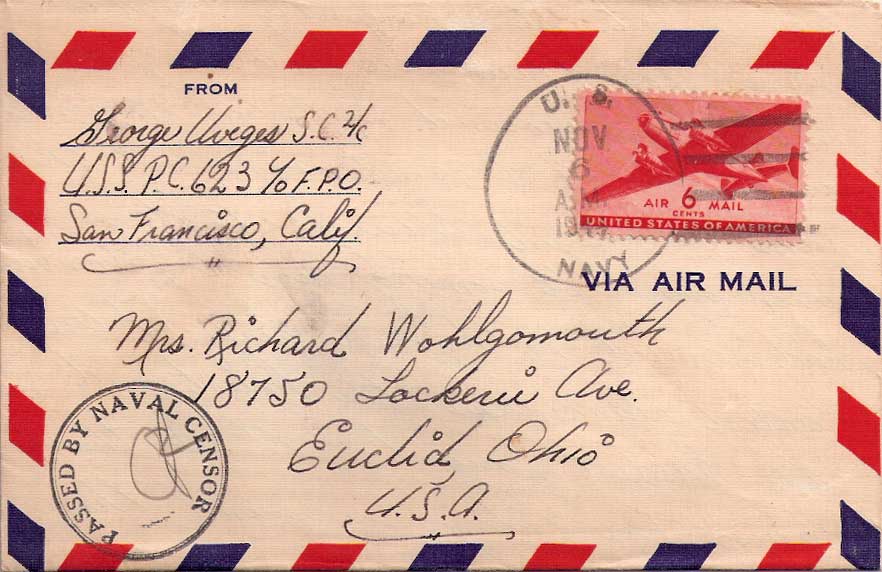 FROM
George Uveges S.C. 2/c
U.S.S. P.C. 623 c/o F.P.O.
San Francisco, Calif.
U. S.
NOV
6
A.M.
NAVY
AIR 6 MAIL
CENTS
UNITED STATES OF AMERICA
VIA AIR MAIL
Mrs. Richard Wohlgomouth
18750 Lockerie Ave.
Euclid, Ohio
U.S.A.
PASSED BY NAVAL CENSOR